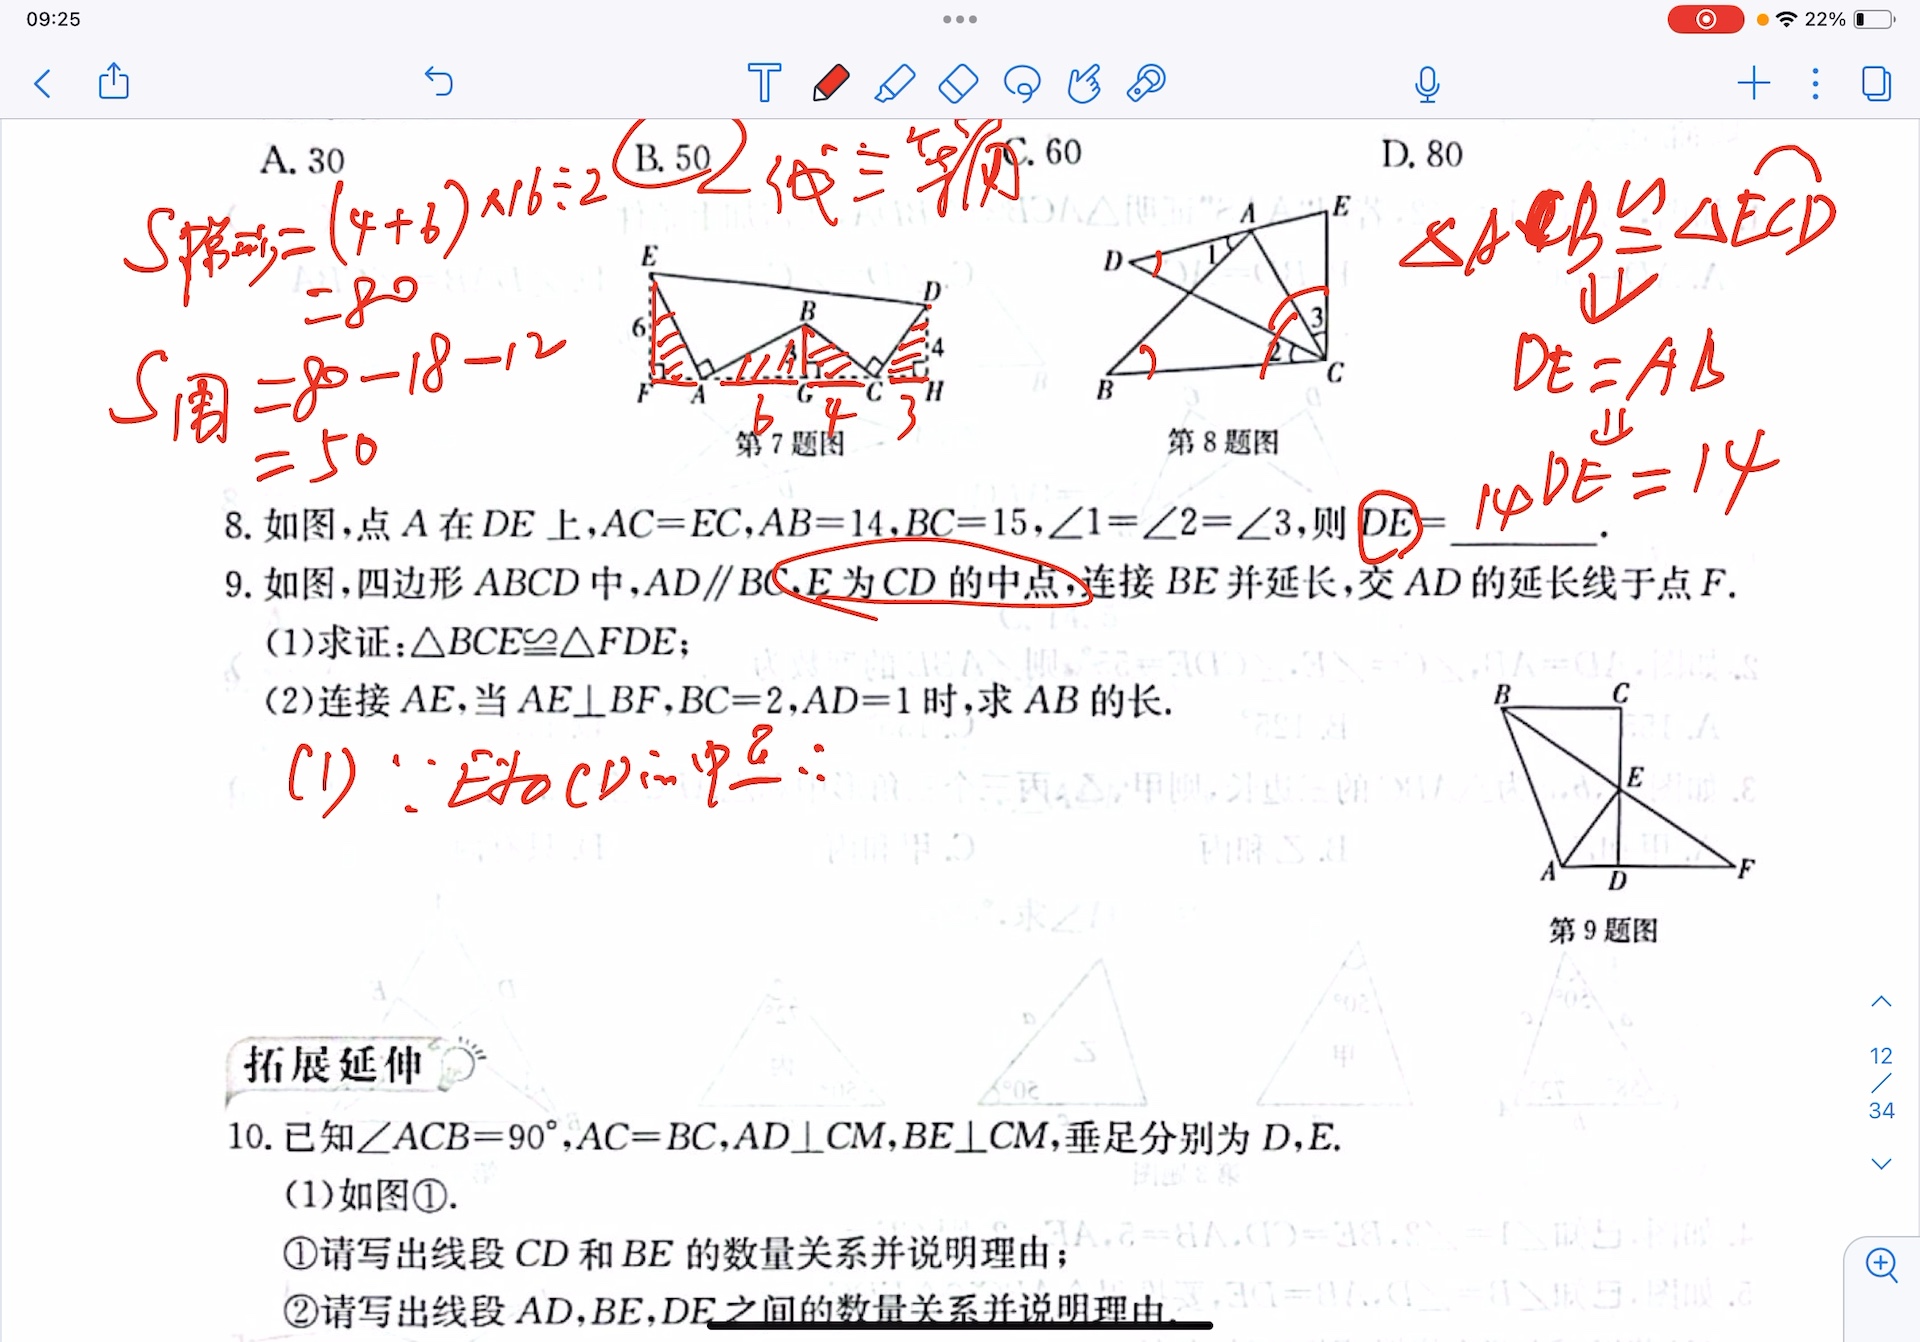 09:25
22%
A. 30
B. 50
C. 60
D. 80
S梯形=(4+6)×16÷2
=80
S周=80-18-12
=50
E
D
B
6
3
4
F A G C H
6 4 3
第7题图
A
E
D
1
3
2
B
C
第8题图
△ACB≌△ECD
⇓
DE=AB
⇓
DE=14
8. 如图,点 A 在 DE 上,AC=EC,AB=14,BC=15,∠1=∠2=∠3,则 DE= 14 .
9. 如图,四边形 ABCD 中,AD∥BC,E 为 CD 的中点,连接 BE 并延长,交 AD 的延长线于点 F.
(1)求证:△BCE≌△FDE;
(2)连接 AE,当 AE⊥BF,BC=2,AD=1 时,求 AB 的长.
(1) ∵E为CD的中点∴
B C
E
A D F
第9题图
拓展延伸
10. 已知∠ACB=90°,AC=BC,AD⊥CM,BE⊥CM,垂足分别为 D,E.
(1)如图①.
①请写出线段 CD 和 BE 的数量关系并说明理由;
②请写出线段 AD,BE,DE 之间的数量关系并说明理由.
12
/
34